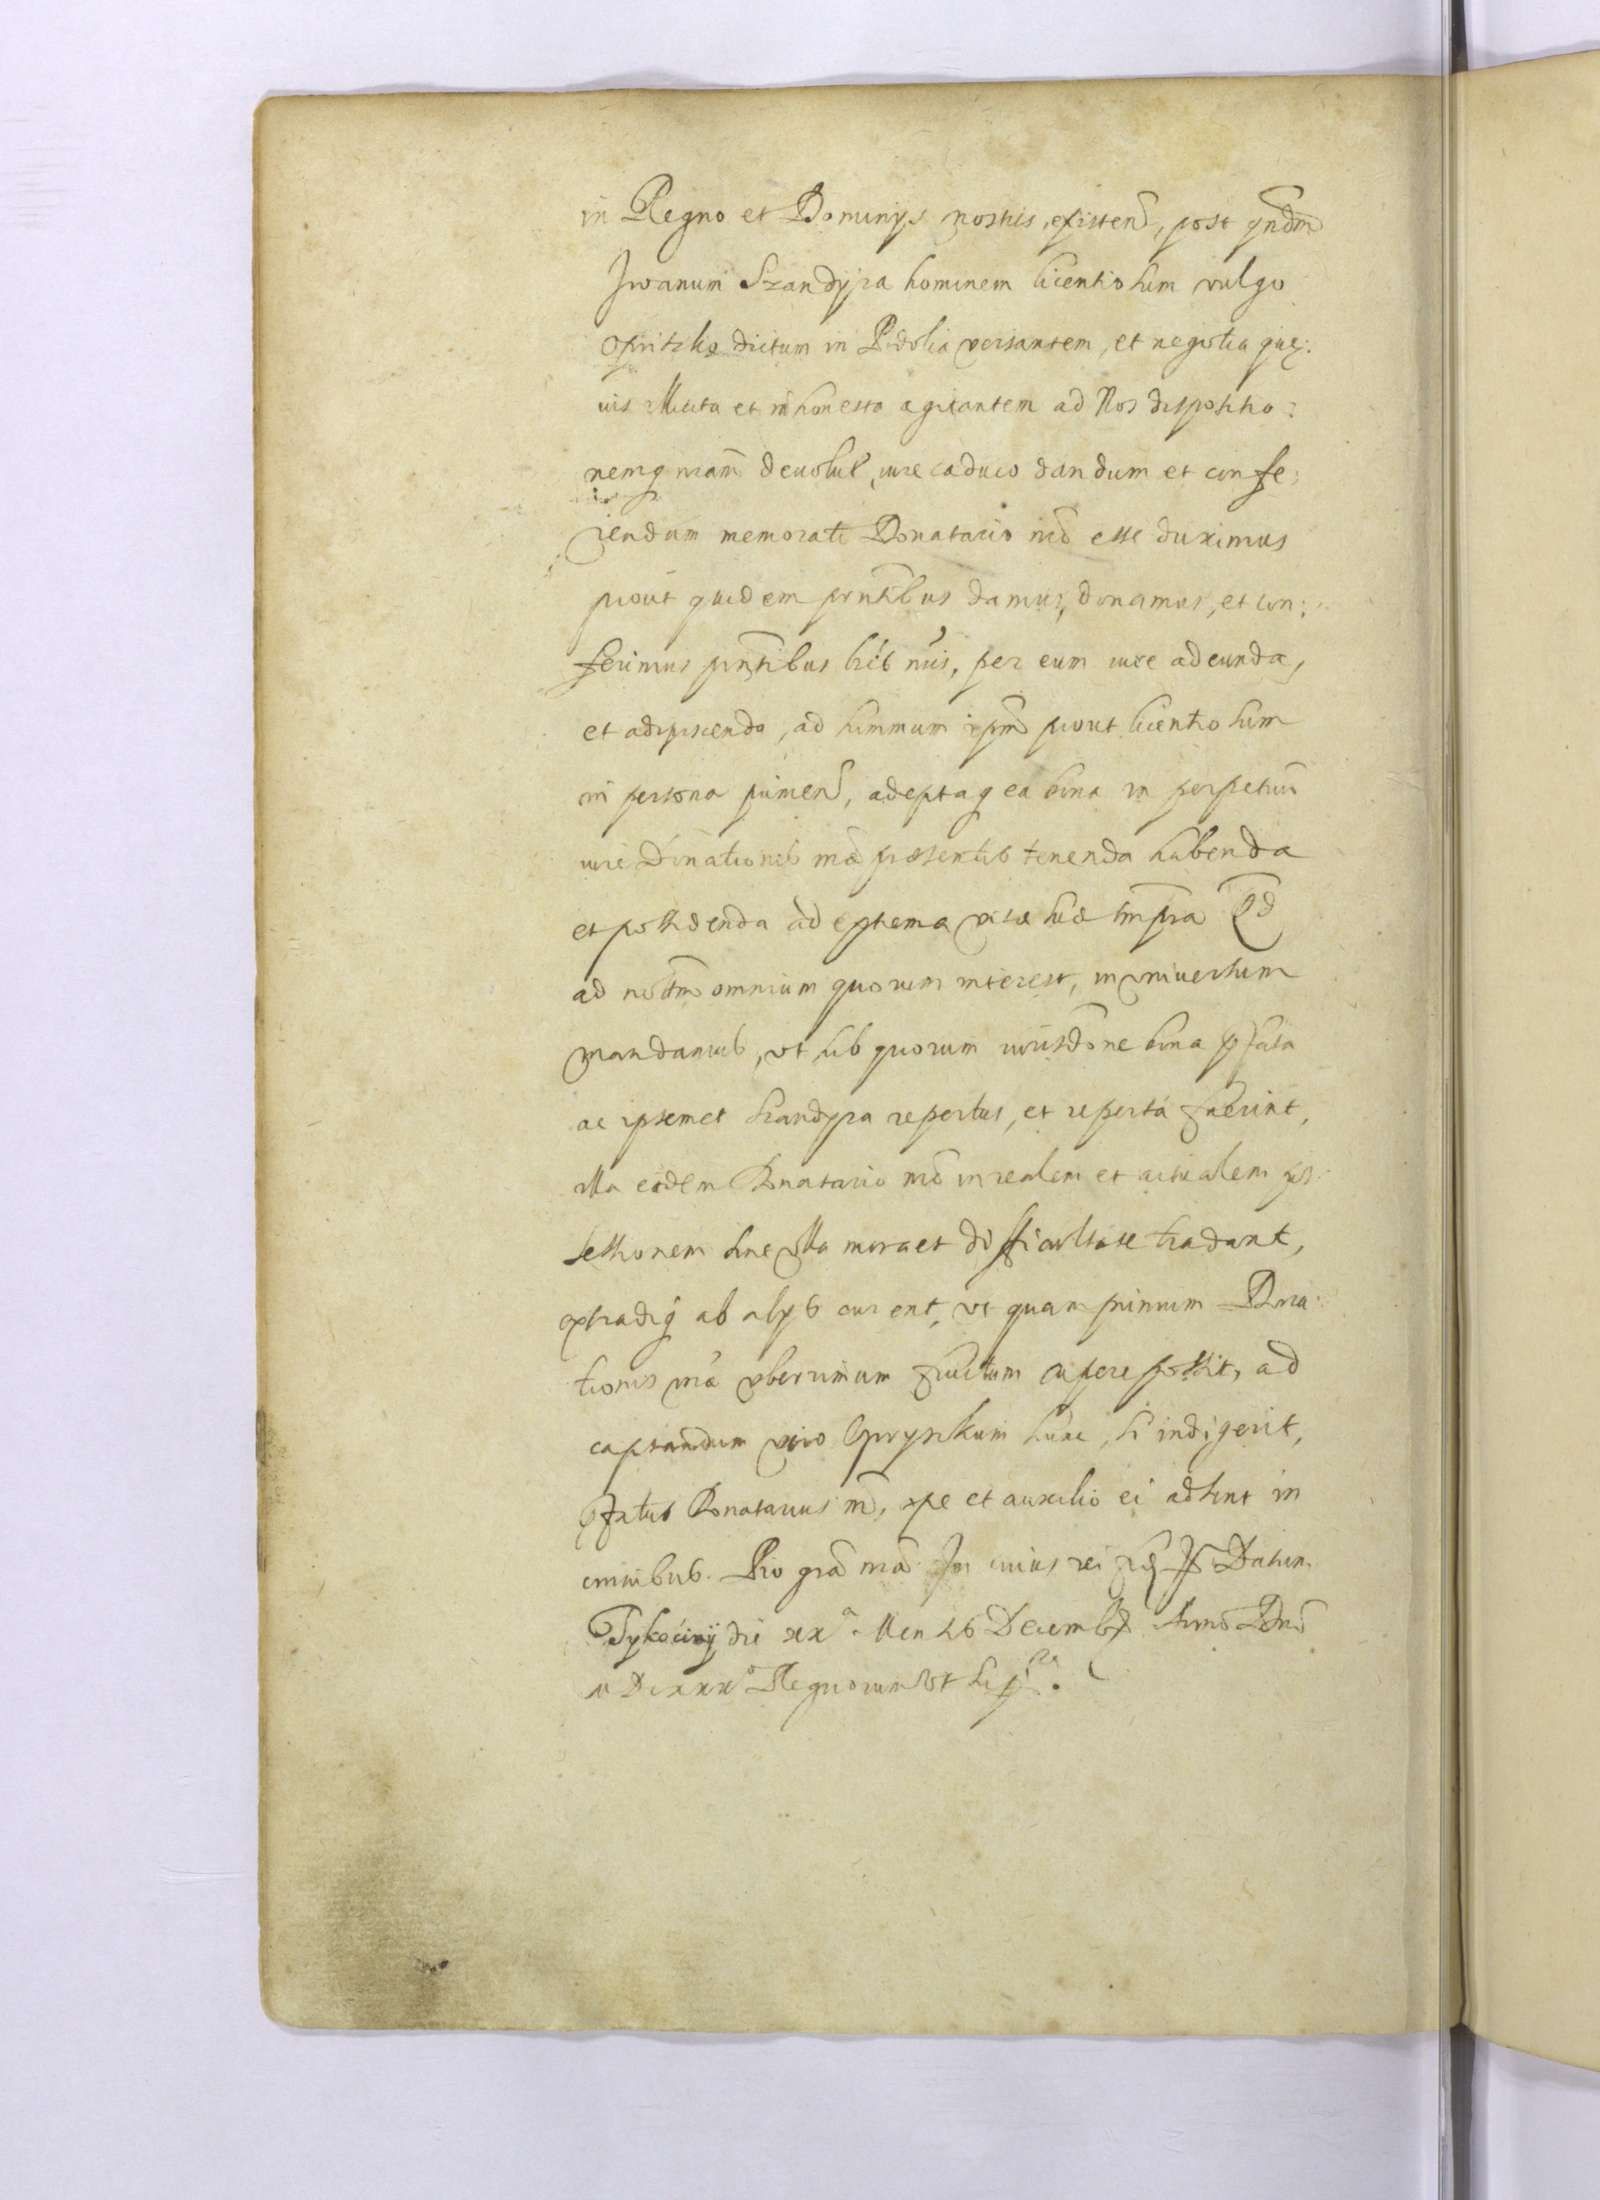 in Regno et Dominijs nostris, existen, post qndm
Iwanum Szandyra hominem licentiosum vulgo
dictum in Podolia versantem, et negotia que:
uis illicita et inhonesta agitantem ad Nos dispositio:
nemq nram devolut, iure caduco dandum et confe:
rendum memorato Donatario nro esse duximus
prout quidem prntibus damus, donamus, et con:
ferimus prntibus lris nris, per eum iure adeunda,
et adipiscenda, ad summum ipm prout licentiosum
in persona, adeptaq ea bona in perpetuu
iure Donationis nrae praesentis tenenda habenda
et possidenda ad extrema vitae suae tmpra Qd
ad notam omnium quorum interest, in vniuersum
mandamus, vt sub quorum iurisdone bona pfata
ac ipsemet Szandyra repertus, et reperta fuerint,
illa eidem Donatario nro in realem et actualem pos:
sessionem sine vlla mora et difficultate tradant,
extradiq ab alys curent, vt quam primum Dona:
tionis nrae vberrimum fructum capere possit, ad
captandum vero Opryszkum hunc, si indigerit,
pfatus Donatarius nr, ope et auxilio ei adsint in
omnibus. Pro gra nra. In cuius rei Datum
Tykocinij die xx Mensis Decembr Anno Dni
M DCxxx Regnorum vt